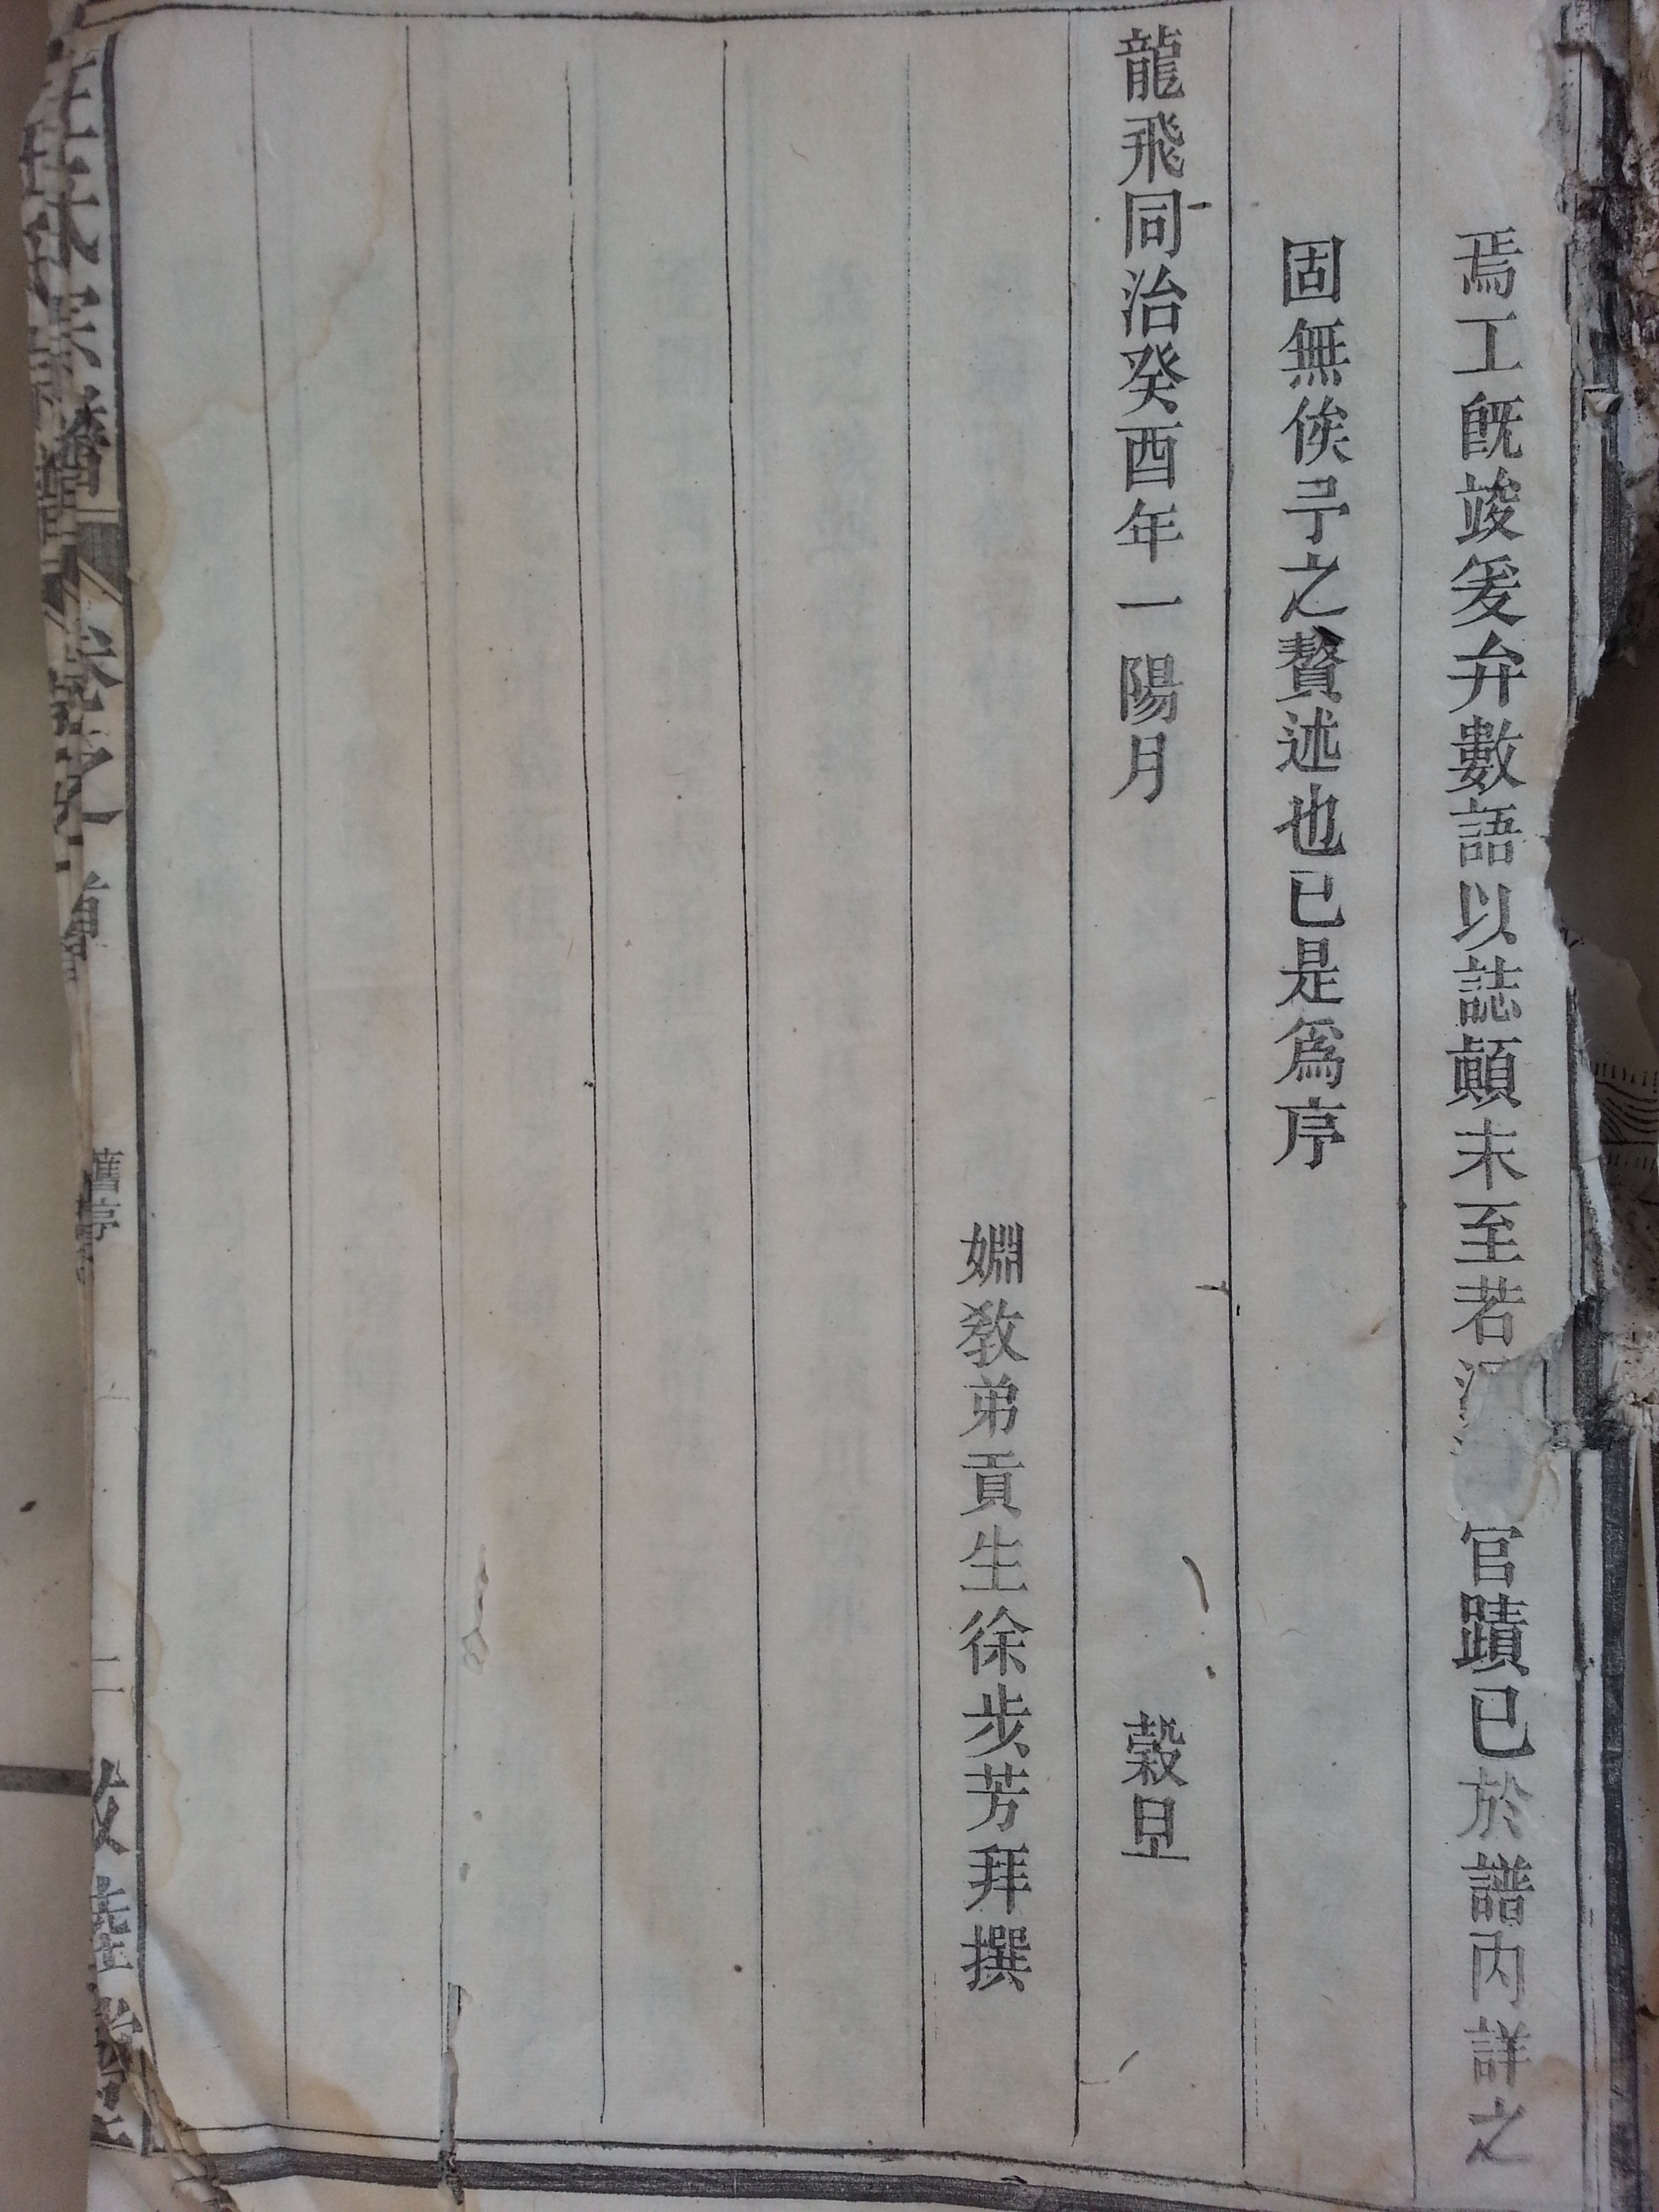 焉工既竣爰弁數語以誌顛末至若官蹟已於譜內詳之
固無俟予之贅述也已是爲序
龍飛同治癸酉年一陽月 榖旦
姻教弟貢生徐步芳拜撰
宗譜 卷之首 舊序 二